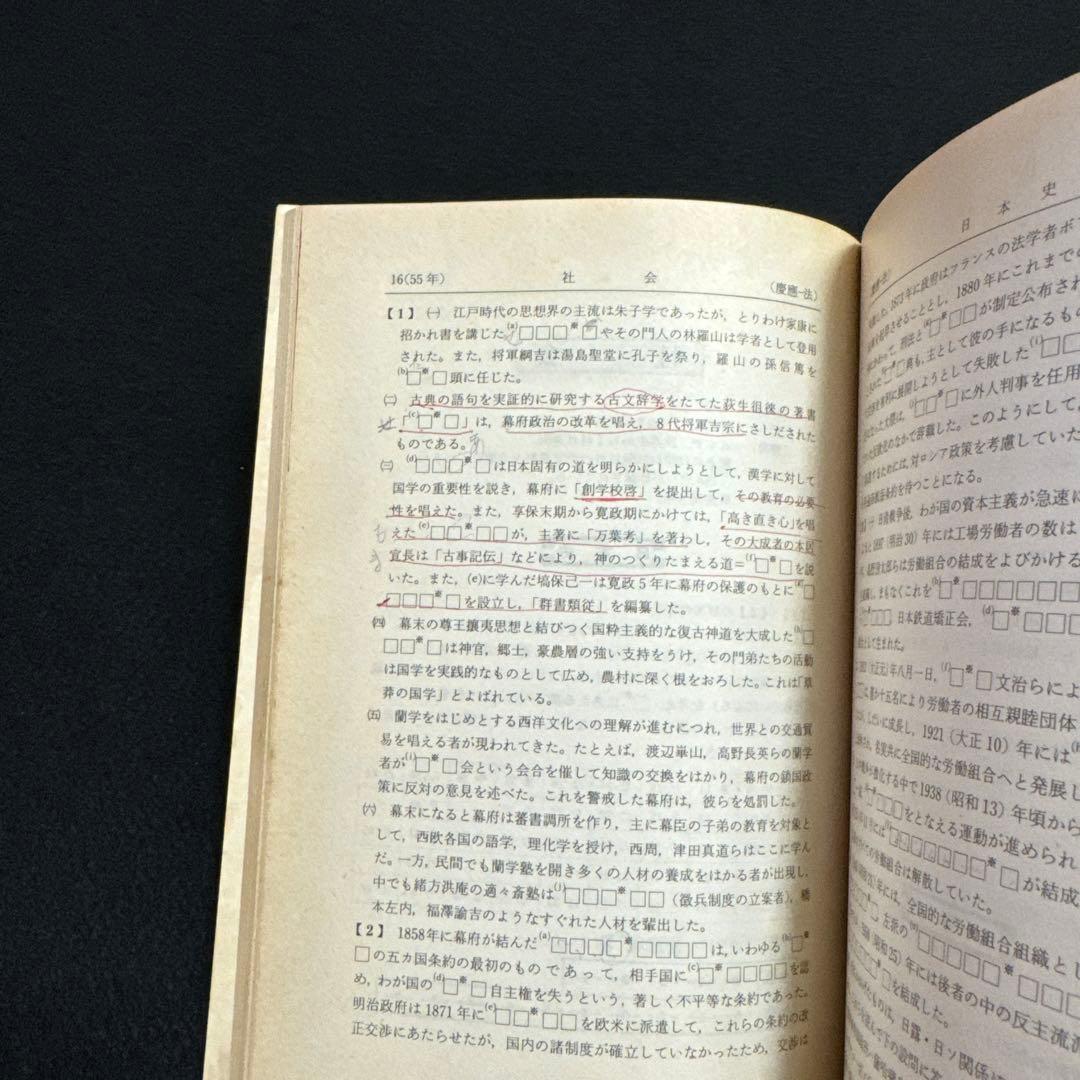 16(55年) 社会 (慶應-法)
【1】 ㈠ 江戸時代の思想界の主流は朱子学であったが，とりわけ家康に
招かれ書を講じた(a)□□□※□やその門人の林羅山は学者として登用
された。また，将軍綱吉は湯島聖堂に孔子を祭り，羅山の孫信篤を
(b)□※□頭に任じた。
㈡ 古典の語句を実証的に研究する古文辞学をたてた荻生徂徠の著書
「(c)□※□」は，幕府政治の改革を唱え，8代将軍吉宗にさしだされた
ものである。
㈢ (d)□□□※□は日本固有の道を明らかにしようとして，漢学に対して
国学の重要性を説き，幕府に「創学校啓」を提出して，その教育の必要
性を唱えた。また，享保末期から寛政期にかけては，「高き直き心」を唱
えた(e)□□□※□が，主著に「万葉考」を著わし，その大成者の本居
宣長は「古事記伝」などにより，神のつくりたまえる道＝(f)□※□を説
いた。また，(e)に学んだ塙保己一は寛政5年に幕府の保護のもとに(g)
□□□□※□を設立し，「群書類従」を編纂した。
㈣ 幕末の尊王攘夷思想と結びつく国粋主義的な復古神道を大成した(h)□
□□※□は神官，郷士，豪農層の強い支持をうけ，その門弟たちの活動
は国学を実践的なものとして広め，農村に深く根をおろした。これは「草
莽の国学」とよばれている。
㈤ 蘭学をはじめとする西洋文化への理解が進むにつれ，世界との交通貿
易を唱える者が現われてきた。たとえば，渡辺崋山，高野長英らの蘭学
者が(i)□※□会という会合を催して知識の交換をはかり，幕府の鎖国政
策に反対の意見を述べた。これを警戒した幕府は，彼らを処罰した。
㈥ 幕末になると幕府は蕃書調所を作り，主に幕臣の子弟の教育を対象と
して，西欧各国の語学，理化学を授け，西周，津田真道らはここに学ん
だ。一方，民間でも蘭学塾を開き多くの人材の養成をはかる者が出現し，
中でも緒方洪庵の適々斎塾は(j)□□※□□（徴兵制度の立案者），橋
本左内，福澤諭吉のようなすぐれた人材を輩出した。
【2】 1858年に幕府が結んだ(a)□□□□※□□□□は，いわゆる(b)□※
□の五カ国条約の最初のものであって，相手国に(c)□※□□□□を認
め，わが国の(d)□※□自主権を失うという，著しく不平等な条約であった。
明治政府は1871年に(e)□□※□□を欧米に派遣して，これらの条約の改
正交渉にあたらせたが，国内の諸制度が確立していなかったため，交渉は
日本史
1873年に政府はフランスの法学者ボ
させることとし，1880年にこれまでの
刑法と(e)□※□□が制定公布され
も，主として彼の手になるもの
に展開しようとして失敗した(i)□□
に外人判事を任用
のなかで辞職した。このようにして，
するためには，対ロシア政策を考慮していた
条約を待つことになる。
日清戦争後，わが国の資本主義が急速に
1897（明治30）年には工場労働者の数は
らは労働組合の結成をよびかける
し，まもなくこれを(b)□□□□□□
，日本鉄道矯正会，(d)□
として生まれた。
(大正元)年八月一日，(f)□※□文治らによ
か十五名により労働者の相互親睦団体
しだいに成長し，1921（大正10）年には
名実共に全国的な労働組合へと発展し
する中で1938（昭和13）年頃から
□□□をとなえる運動が進められ
□□□□□※□が結成
ての労働組合は解散していた。
年には，全国的な労働組合組織とし
左派の(n)□□□□□※□
(昭和25)年には後者の中の反主流派
□を結成した。
たものは，日露・日ソ関係